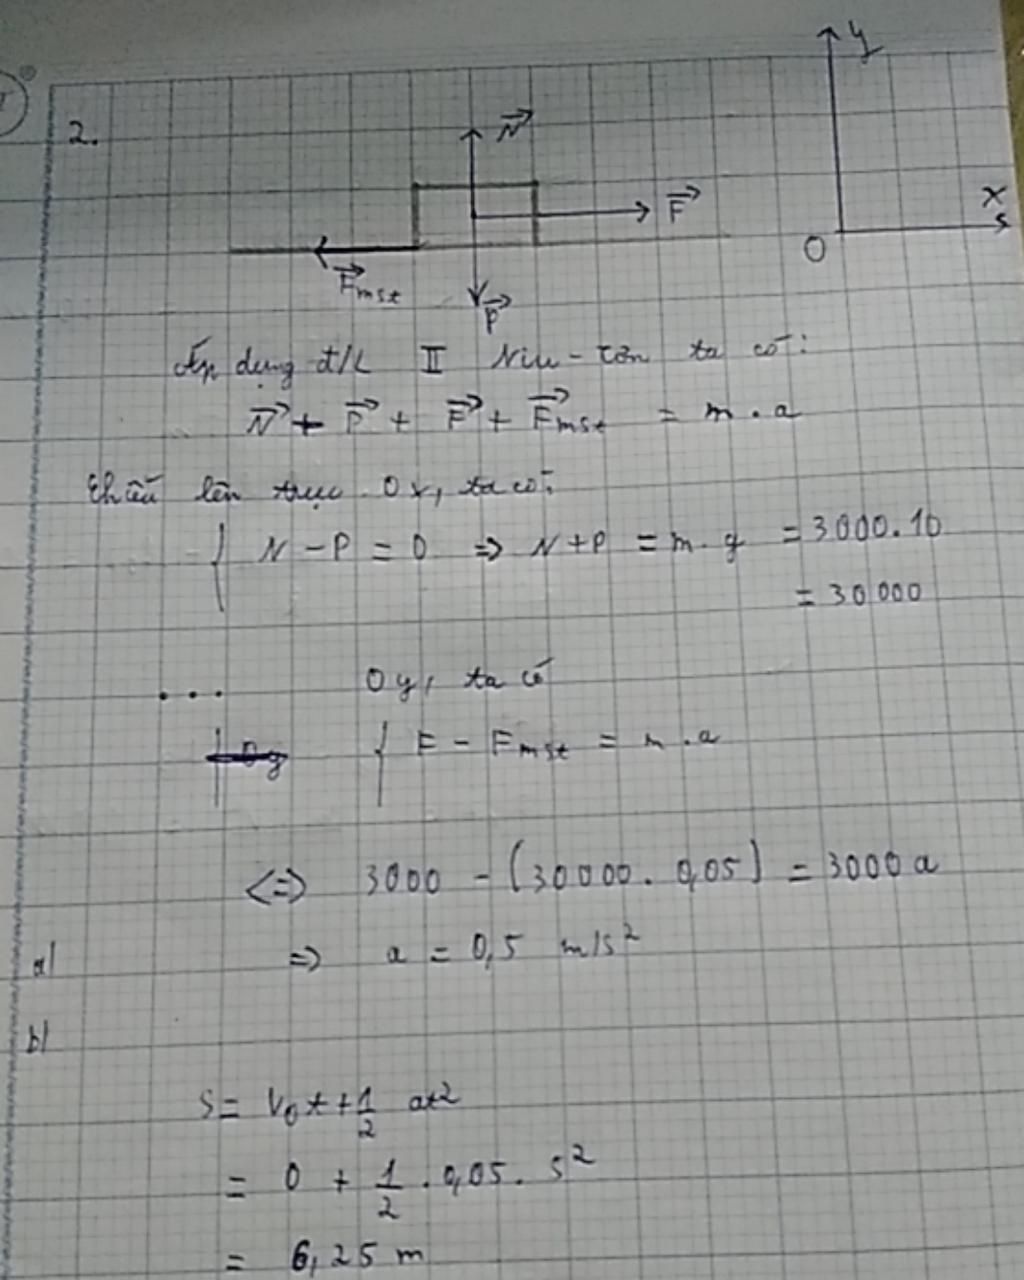 2.
y
N
F
x
O
Fmst
P
Áp dụng đ/L II Niu-tơn ta có:
N + P + F + Fmst = m.a
Chiếu lên trục Ox, ta có:
N - P = 0 => N + P = m.g = 3000.10
= 30 000
... Oy, ta có
Oy { F - Fmst = m.a
<=> 3000 - (30000. 0,05) = 3000a
a/ => a = 0,5 m/s²
b/
S = V₀t + 1/2 at²
= 0 + 1/2 . 0,05. 5²
= 6,25 m